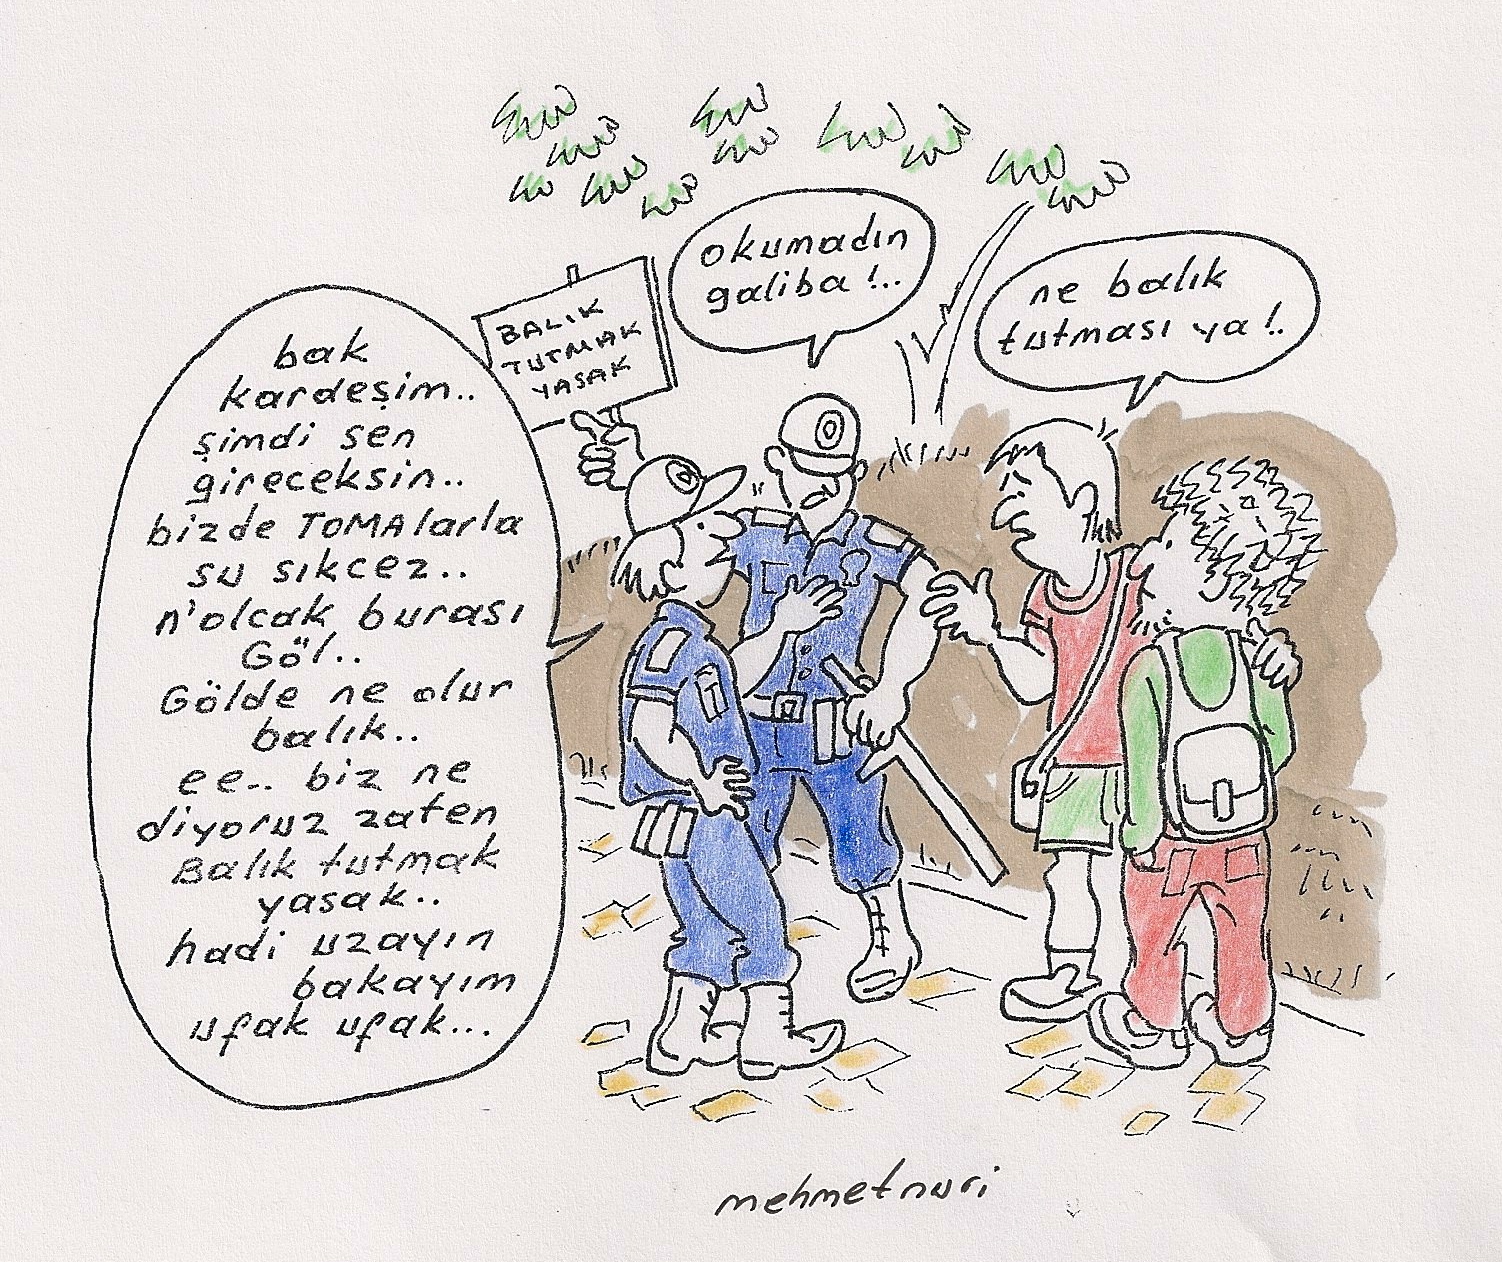 BALIK
TUTMAK
YASAK
okumadın
galiba !..
ne balık
tutması ya !..
bak
kardeşim..
şimdi sen
gireceksin..
bizde TOMAlarla
su sıkcez..
n'olcak burası
Göl..
Gölde ne olur
balık..
ee.. biz ne
diyoruz zaten
Balık tutmak
yasak..
hadi uzayın
bakayım
ufak ufak...
mehmetnuri